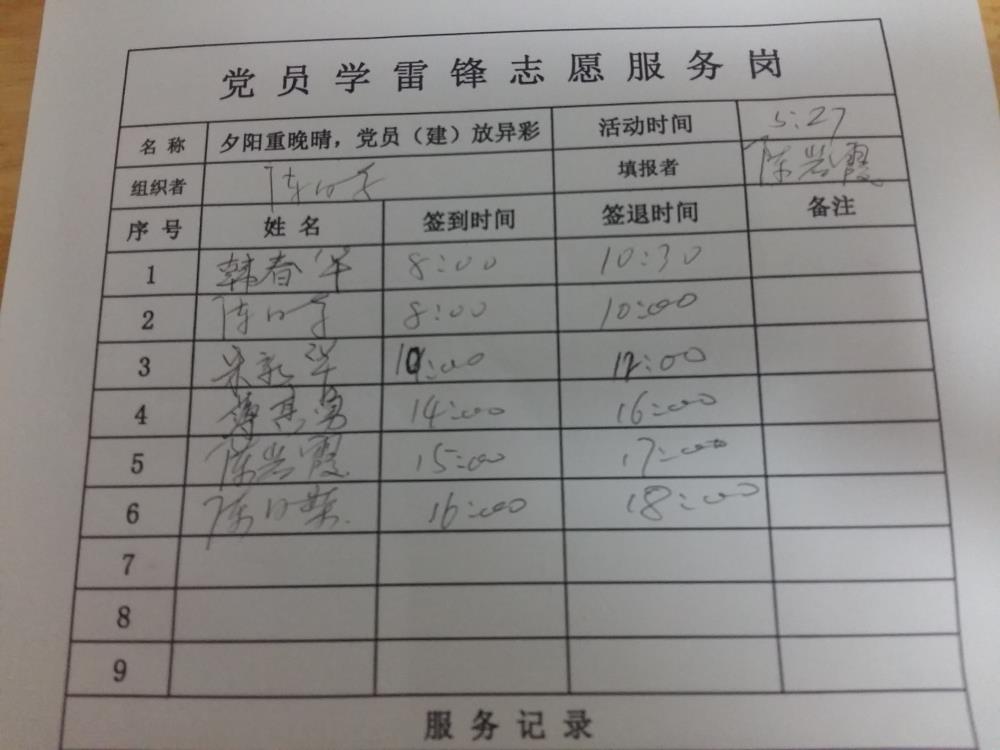 党员学雷锋志愿服务岗
名称 夕阳重晚晴，党员（建）放异彩 活动时间 5:27
组织者 陈日 填报者 陈岩霞
序号 姓名 签到时间 签退时间 备注
1 韩春华 8:00 10:30
2 陈日 8:00 10:00
3 朱新华 10:00 12:00
4 14:00 16:00
5 陈岩霞 15:00 17:00
6 陈日荣 16:00 18:00
7
8
9
服务记录